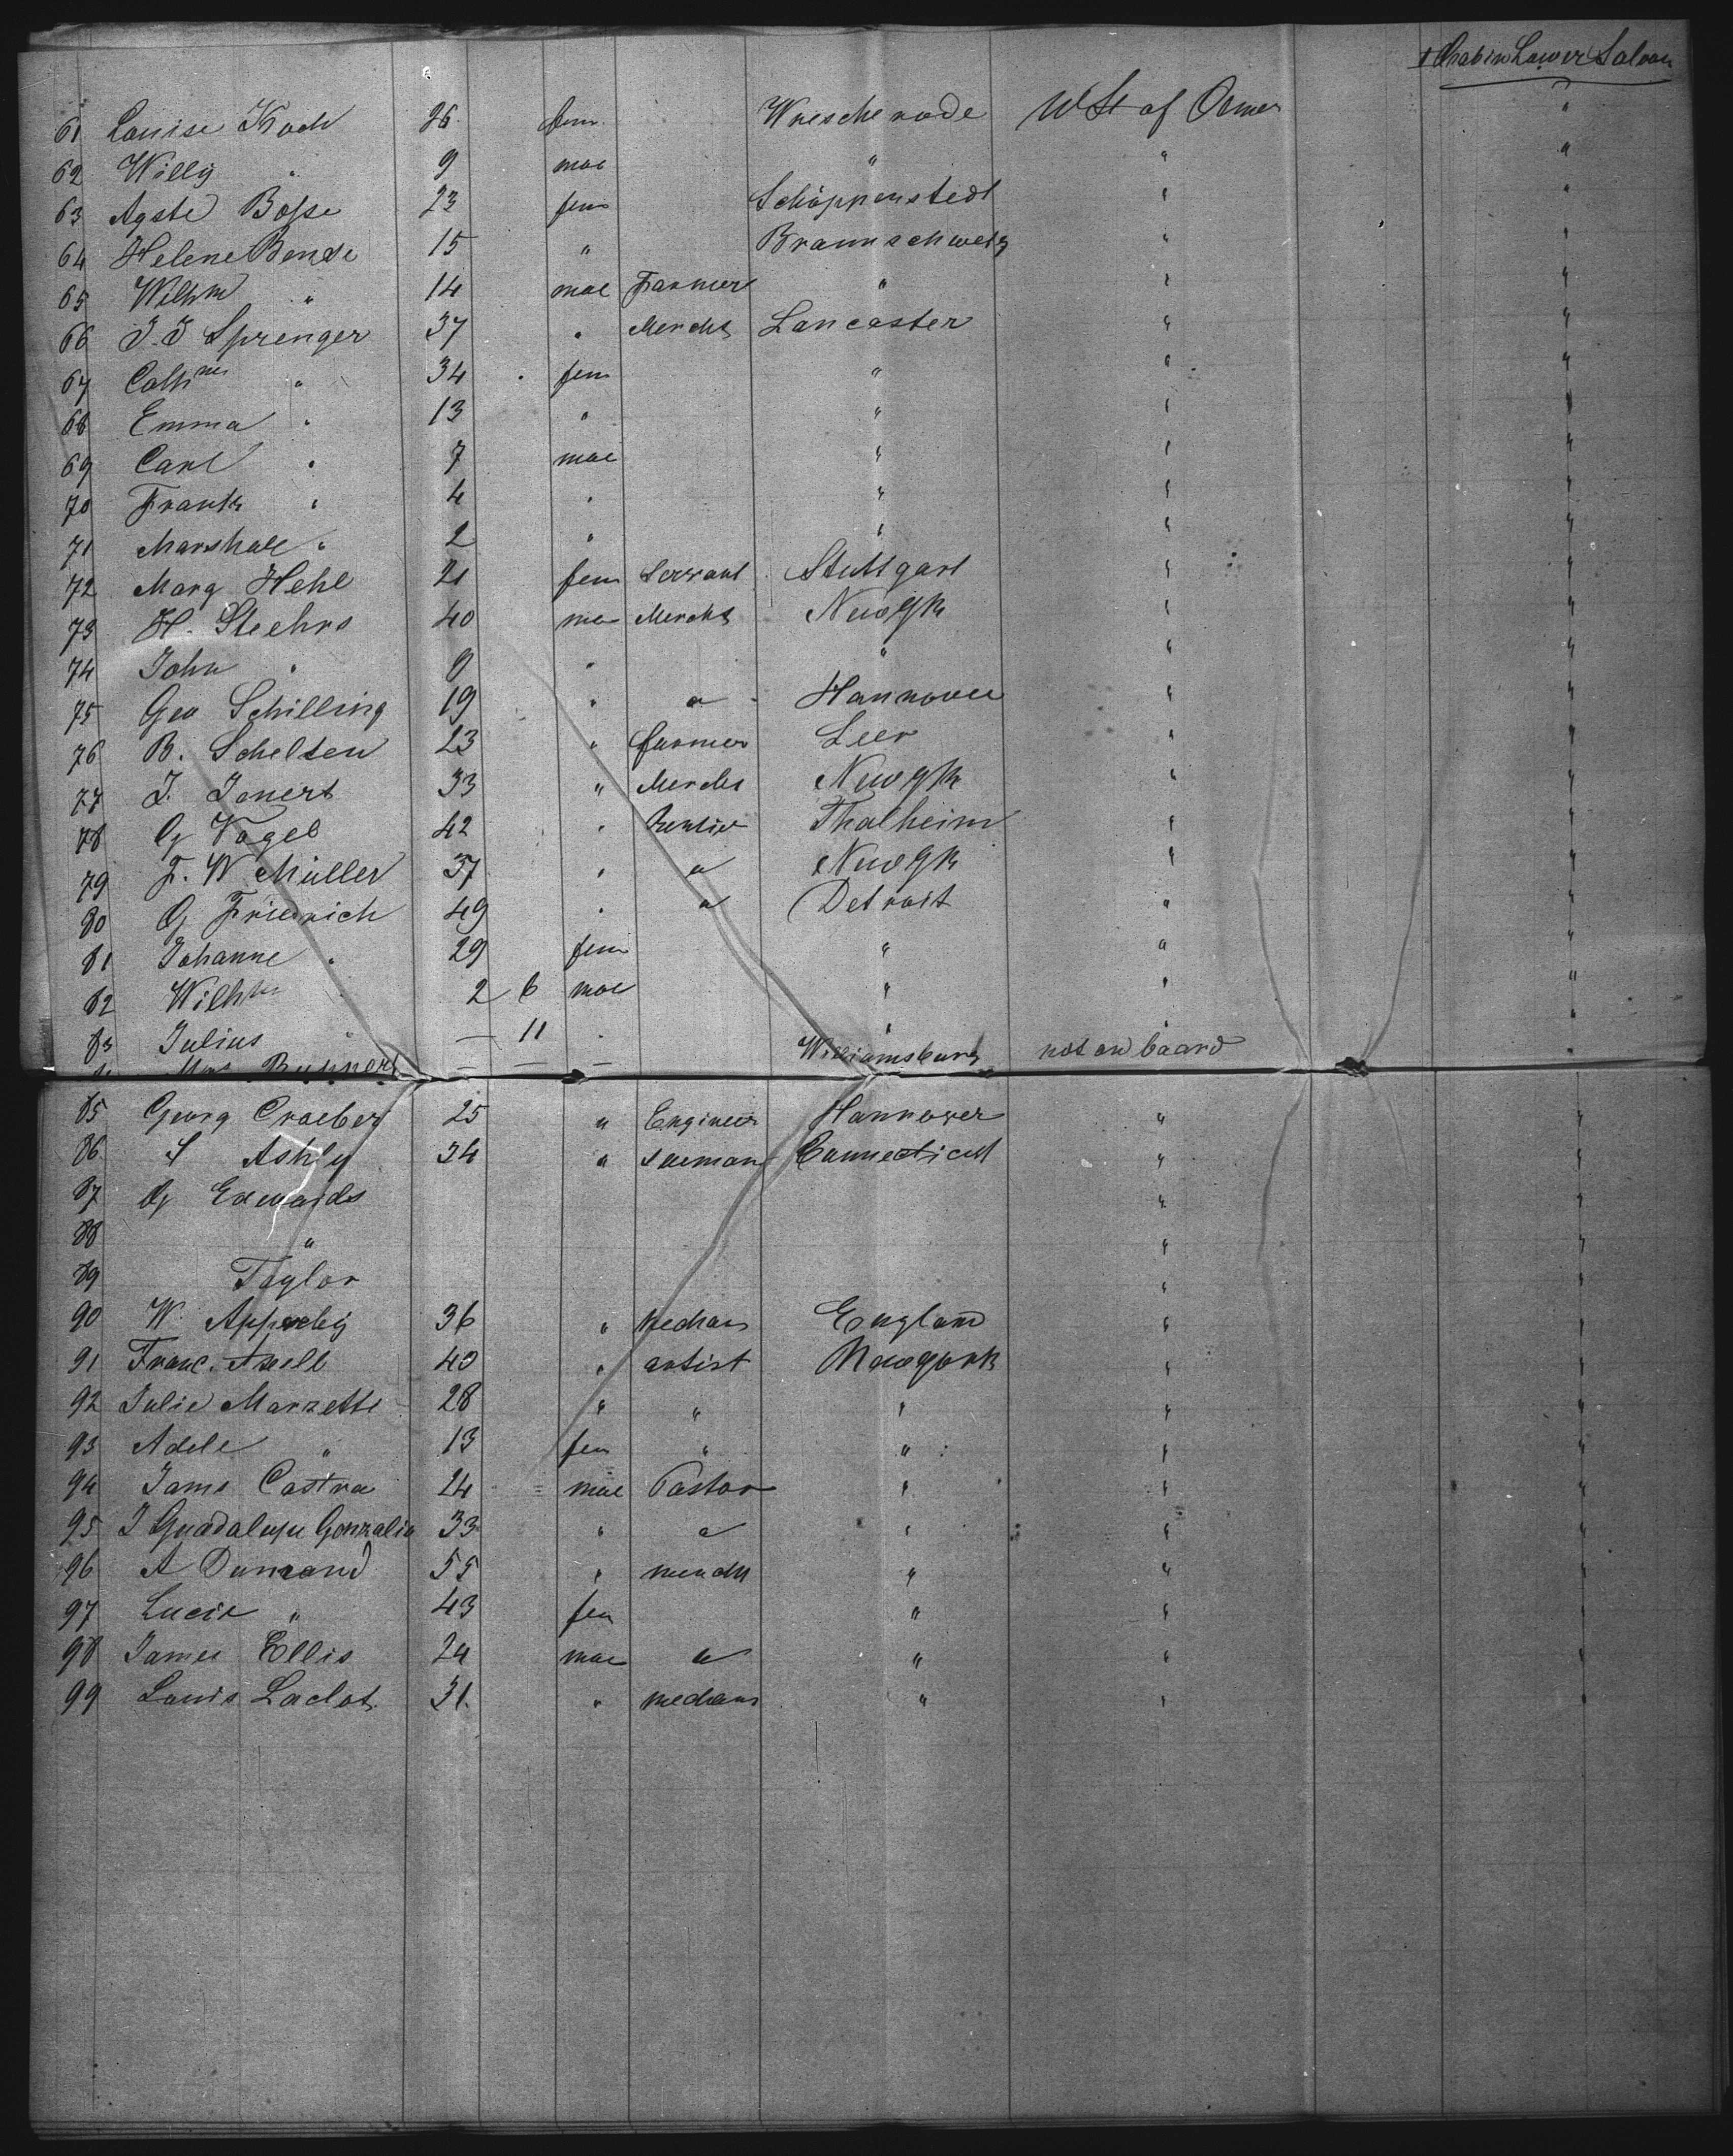 1 Chabin Lower Saloon
61 Louise Koch 26 fem Wrescherode U St of Amer "
62 Willy " 9 mal " " "
63 Agste Bosse 23 fem Schöppenstedt " "
64 Helene Bense 15 " Braunschweig " "
65 Wilhm " 14 mal Farmer " " "
66 J. J Sprenger 37 " Mercht Lancaster " "
67 Cath " 34 fem " " "
68 Emma " 13 " " " "
69 Carl " 7 mal " " "
70 Frank " 4 " " " "
71 Marshall " 2 " " " "
72 Marg Hehl 21 fem Servant Stuttgart " "
73 H. Stechrs 40 ma Mercht NewYk " "
74 John " 9 " " " "
75 Geo Schilling 19 " " Hannover " "
76 B. Schelten 23 " farmer Leer " "
77 J. Jonert 33 " Mercht NewYk " "
78 G Vogel 42 " Rentier Thalheim " "
79 F. W Müller 37 " " NewYk " "
80 G Friedrich 49 " " Detroit " "
81 Johanne " 29 fem " " "
82 Wilhm " 2 6 mal " " "
83 Julius " — 11 " " " "
Mrs — — — Williamsburg not on board "
85 Georg Craeber 25 " Engineer Hannover " "
86 S Ashly 34 " seeman Connecticut " "
87 G Edwards " "
88 " " "
89 Taylor " "
90 W. Apperly 36 " mechan England " "
91 Franc. Axell 40 " artist Newyork " "
92 Julie Marzetti 28 " " " " "
93 Adele " 13 fem " " " "
94 Jams Castra 24 mal Pastor " " "
95 J Guadalupe Gonzalis 33 " " " " "
96 A Dumand 55 " mercht " " "
97 Lucie " 43 fem " " "
98 James Ellis 24 mal " " " "
99 Louis Laclot 31. " mechan " " "